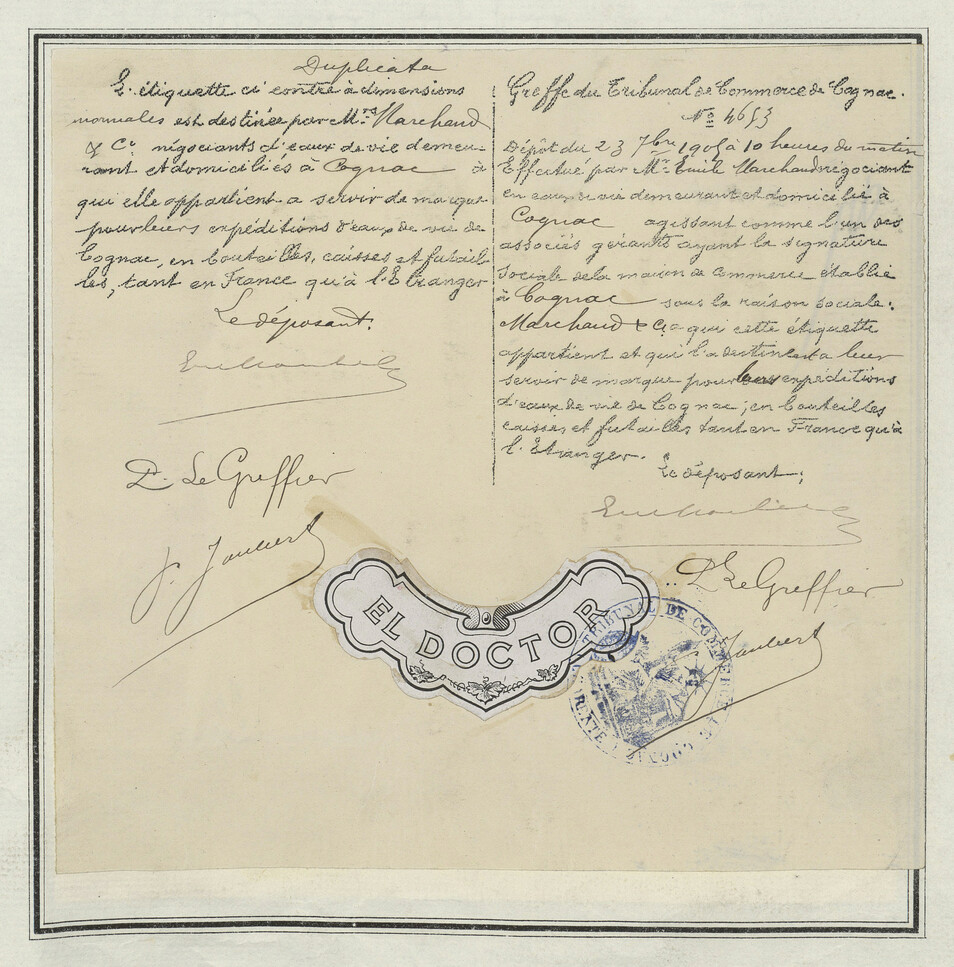 Duplicata
L'étiquette ci contre à dimensions
normales est destinée par Mrs Marchand
& Cie négociants d'eaux de vie demeu-
rant et domiciliés à Cognac à
qui elle appartient a servir de marque
pour leurs expéditions d'eaux de vie de
Cognac, en bouteilles, caisses et futail-
les, tant en France qu'à l'Etranger
Le déposant.
P. Le Greffier
Greffe du Tribunal de Commerce de Cognac.
No 4653
Dépôt du 23 7bre 1905 à 10 heures du matin
Effectué par Mr Emile Marchand négociant
en eaux de vie demeurant et domicilié à
Cognac agissant comme l'un des
associés gérants ayant la signature
sociale de la maison de commerce établie
à Cognac sous la raison sociale:
Marchand & Cie a qui cette étiquette
appartient et qui l'a destinent a leur
servir de marque pour leurs expéditions
d'eaux de vie de Cognac, en bouteilles
caisses et futailles tant en France qu'à
l'Etranger.
Le déposant;
P. Le Greffier
EL DOCTOR
TRIBUNAL DE COMMERCE